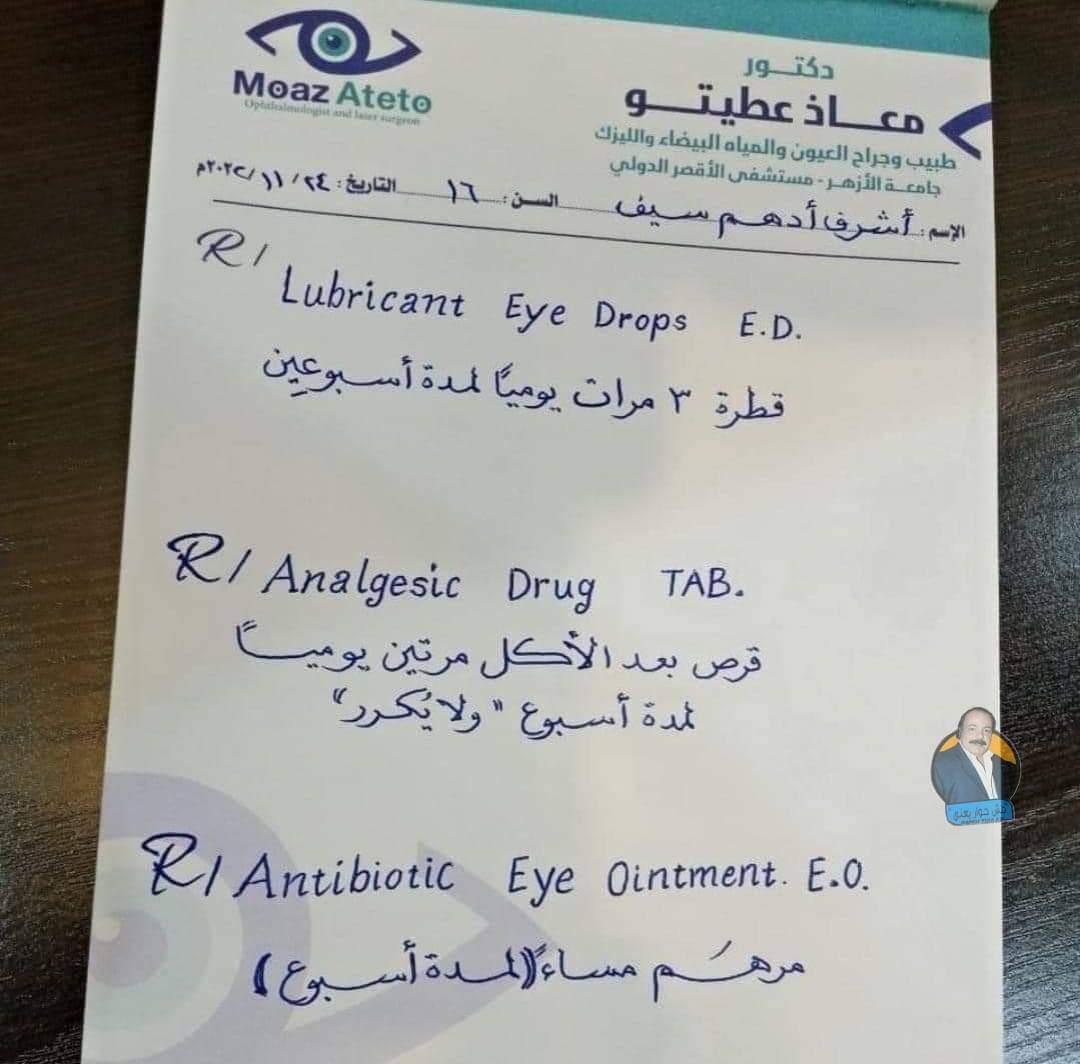 Moaz Ateto
Ophthalmologist and laser surgeon
دكتــور
معــاذ عطيتــو
طبيب وجراح العيون والمياه البيضاء والليزك
جامعــة الأزهــر - مستشفى الأقصر الدولي
الإسم: أشرف أدهم سيف السن: ١٦ التاريخ: ٢٤ / ١١ / ٢٠٢٢م
R/ Lubricant Eye Drops E.D.
قطرة ٣ مرات يوميًا لمدة أسبوعين
R/ Analgesic Drug TAB.
قرص بعد الأكل مرتين يوميــًا
لمدة أسبوع "ولا يُكرر"
R/ Antibiotic Eye Ointment. E.O.
مرهَــم مساءً (لمدة أسبوع)